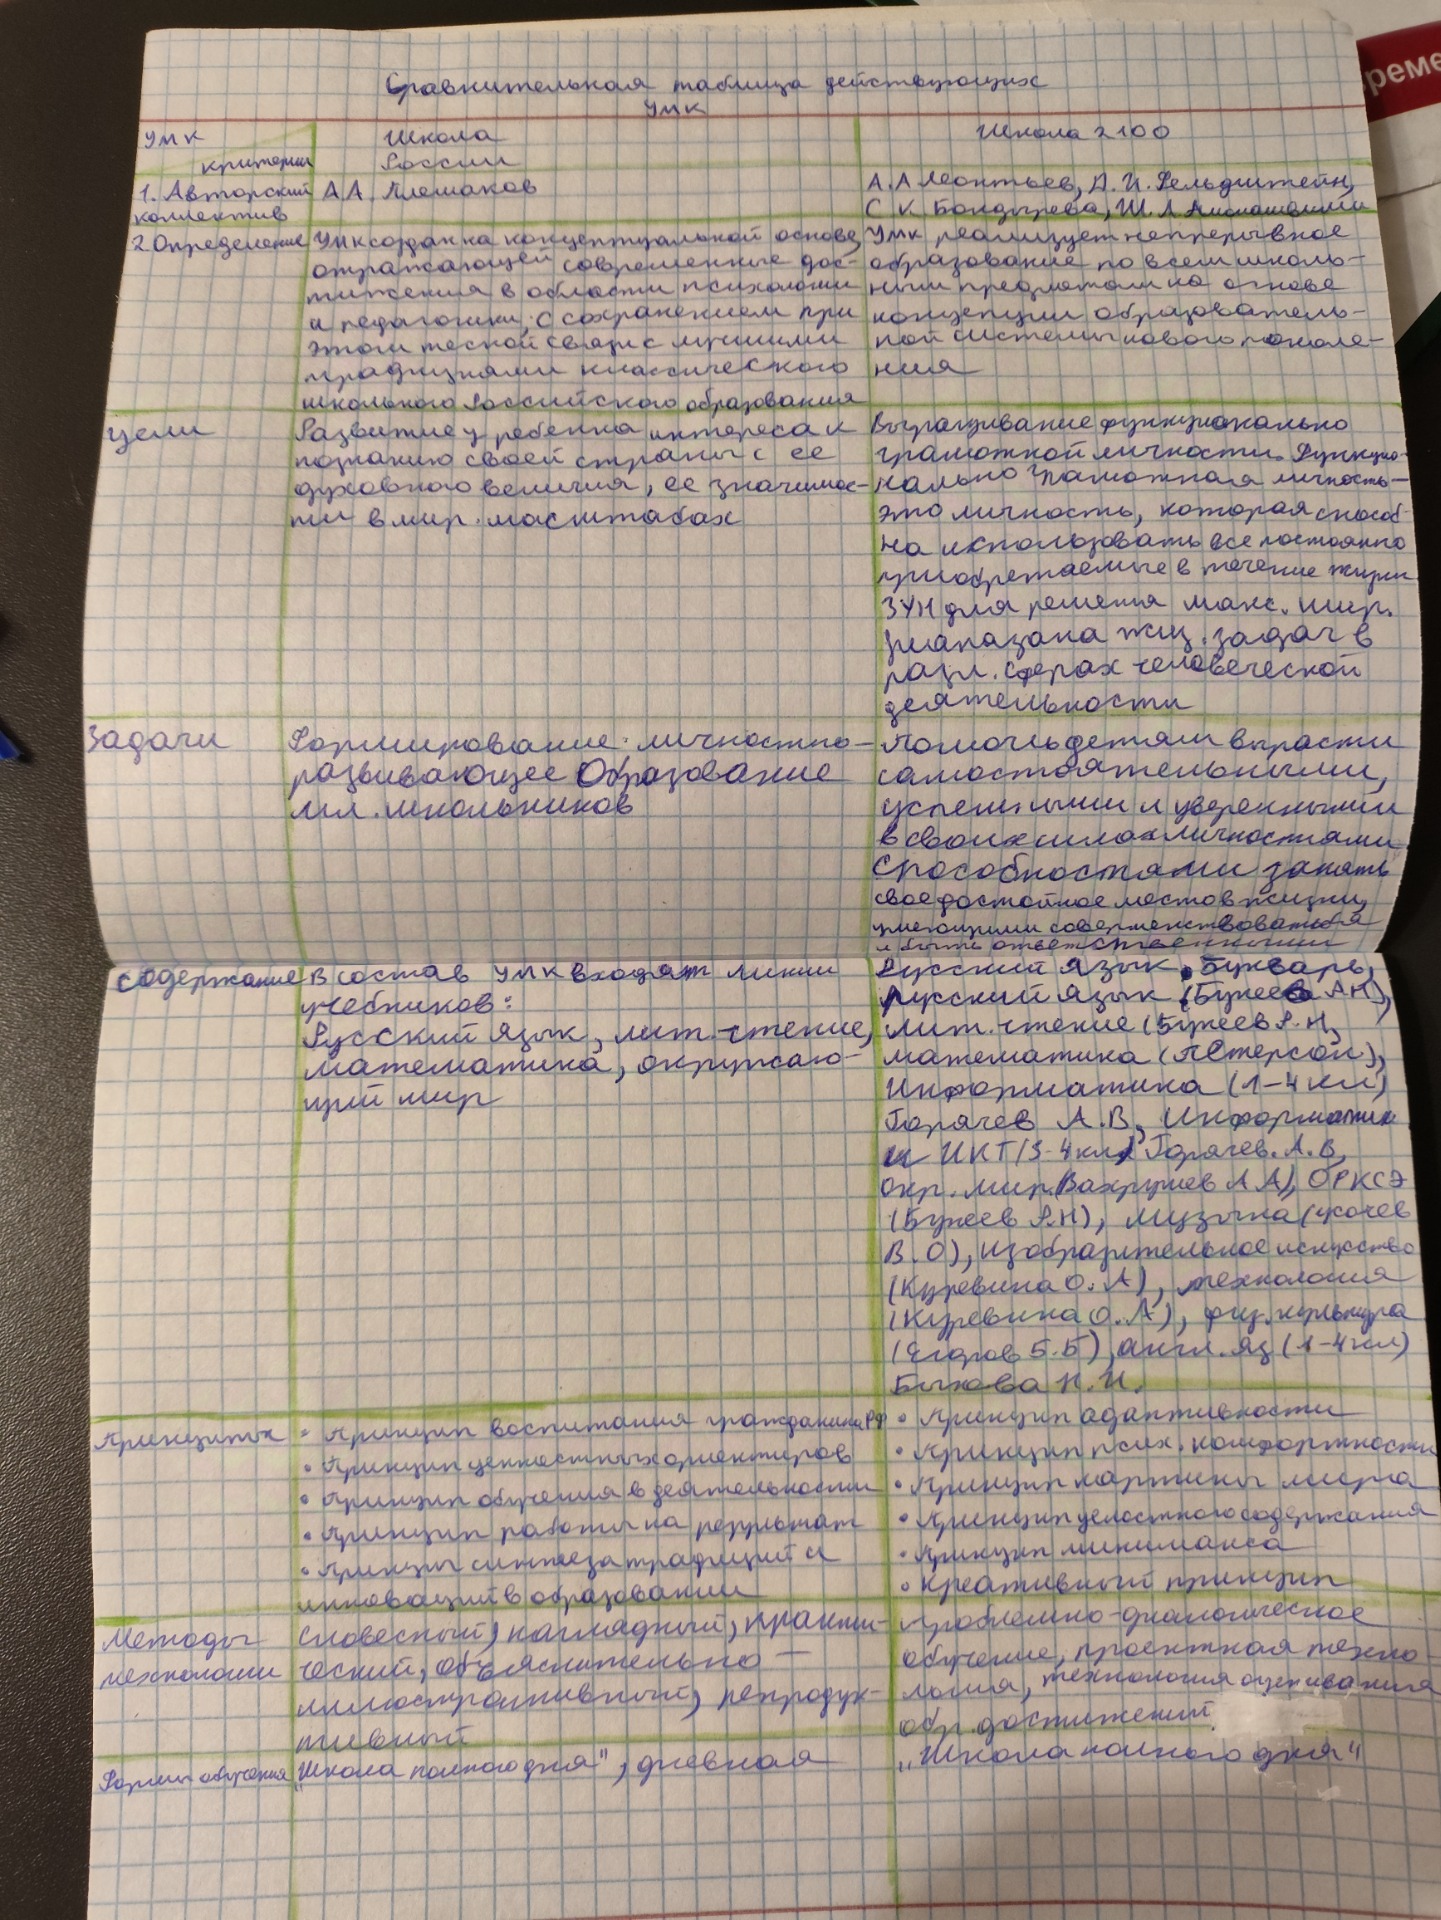 Сравнительная таблица действующих
УМК
УМК
критерии
Школа
России
Школа 2100
1. Авторский
коллектив
А.А. Плешаков
А.А Леонтьев, Д.И. Фельдштейн,
С.К. Бондырева, Ш.А Амонашвили
2. Определение
УМК создан на концептуальной основе,
отражающей современные дос-
тижения в области психологии
и педагогики, с сохранением при
этом тесной связи с лучшими
традициями классического
школьного Российского образования
УМК реализует непрерывное
образование по всем школь-
ным предметам на основе
концепции образователь-
ной системы нового поколе-
ния
Цели
Развитие у ребенка интереса к
познанию своей страны с ее
духовного величия, ее значимос-
ти в мир. масштабах
Выращивание функционально
грамотной личности. Функцио-
нально грамотная личность-
это личность, которая способ-
на использовать все постоянно
приобретаемые в течение жизни
ЗУН для решения макс. шир.
диапазана жиз. задач в
разл. сферах человеческой
деятельности
Задачи
Формирование личностно-
развивающее Образование
мл. школьников
Помочь детям вырасти
самостоятельными,
успешными и уверенными
в своих силах личностями
способностями занять
свое достойное место в жизни,
умеющими совершенствоваться
и быть ответственными
содержание
В состав УМК входят линии
учебников:
Русский язык, лит. чтение,
математика, окружаю-
щий мир
Русский язык. Букварь,
Русский язык (Бунеев АН),
Лит. чтение (Бунеев Р.Н,
математика (Петерсон),
Информатика (1-4 кл)
Горячев А.В, Информатик
и ИКТ (3-4кл) Горячев. А.В,
окр. мир. (Вахрушев А А), ОРКСЭ
(Бунеев Р.Н), музыка (Усачев
В.О), изобразительное искусство
(Куревина О.А), технология
(Куревина О.А), физ. культура
(Егоров Б.Б), англ. яз (1-4кл)
Быкова Н.И.
Принципы
• Принцип воспитания гражданина РФ
• Принцип ценностных ориентиров
• Принцип обучения в деятельности
• Принцип работы на результат
• Принцип синтеза традиций и
инноваций в образовании
• Принцип адаптивности
• Принцип псих. комфортности
• Принцип картины мира
• Принцип целостного содержания
• Принцип минимакса
• Креативный принцип
Методы
технологии
Словесный, наглядный, практи-
ческий, объяснительно-
иллюстративный, репродук-
тивный
Проблемно-диалогическое
обучение, проектная техно-
логия, технология оценивания
обр. достижений
Формы обучения
"Школа полного дня", дневная
"Школа полного дня"
реме